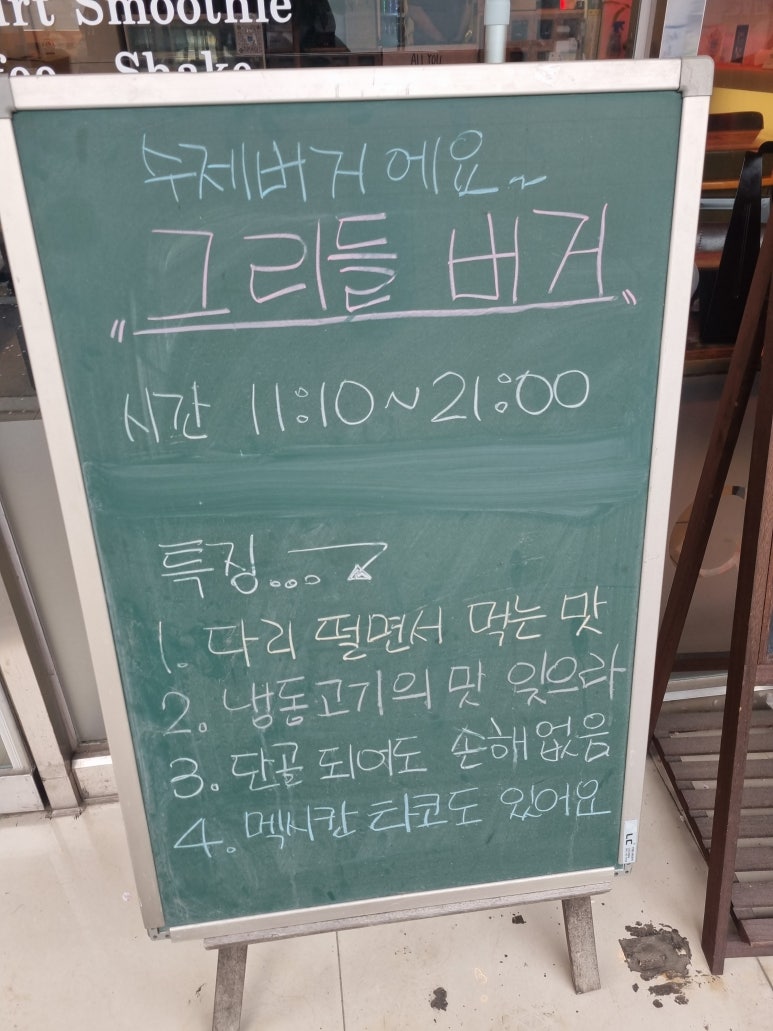 Smoothie
Shake
ALL YOU
수제버거 에요~
"그리들 버거"
시간 11:10~21:00
특징...
1. 다리 떨면서 먹는 맛
2. 냉동고기의 맛 잊으라
3. 단골 되여도 손해없음
4. 멕시칸 타코도 있어요
LC